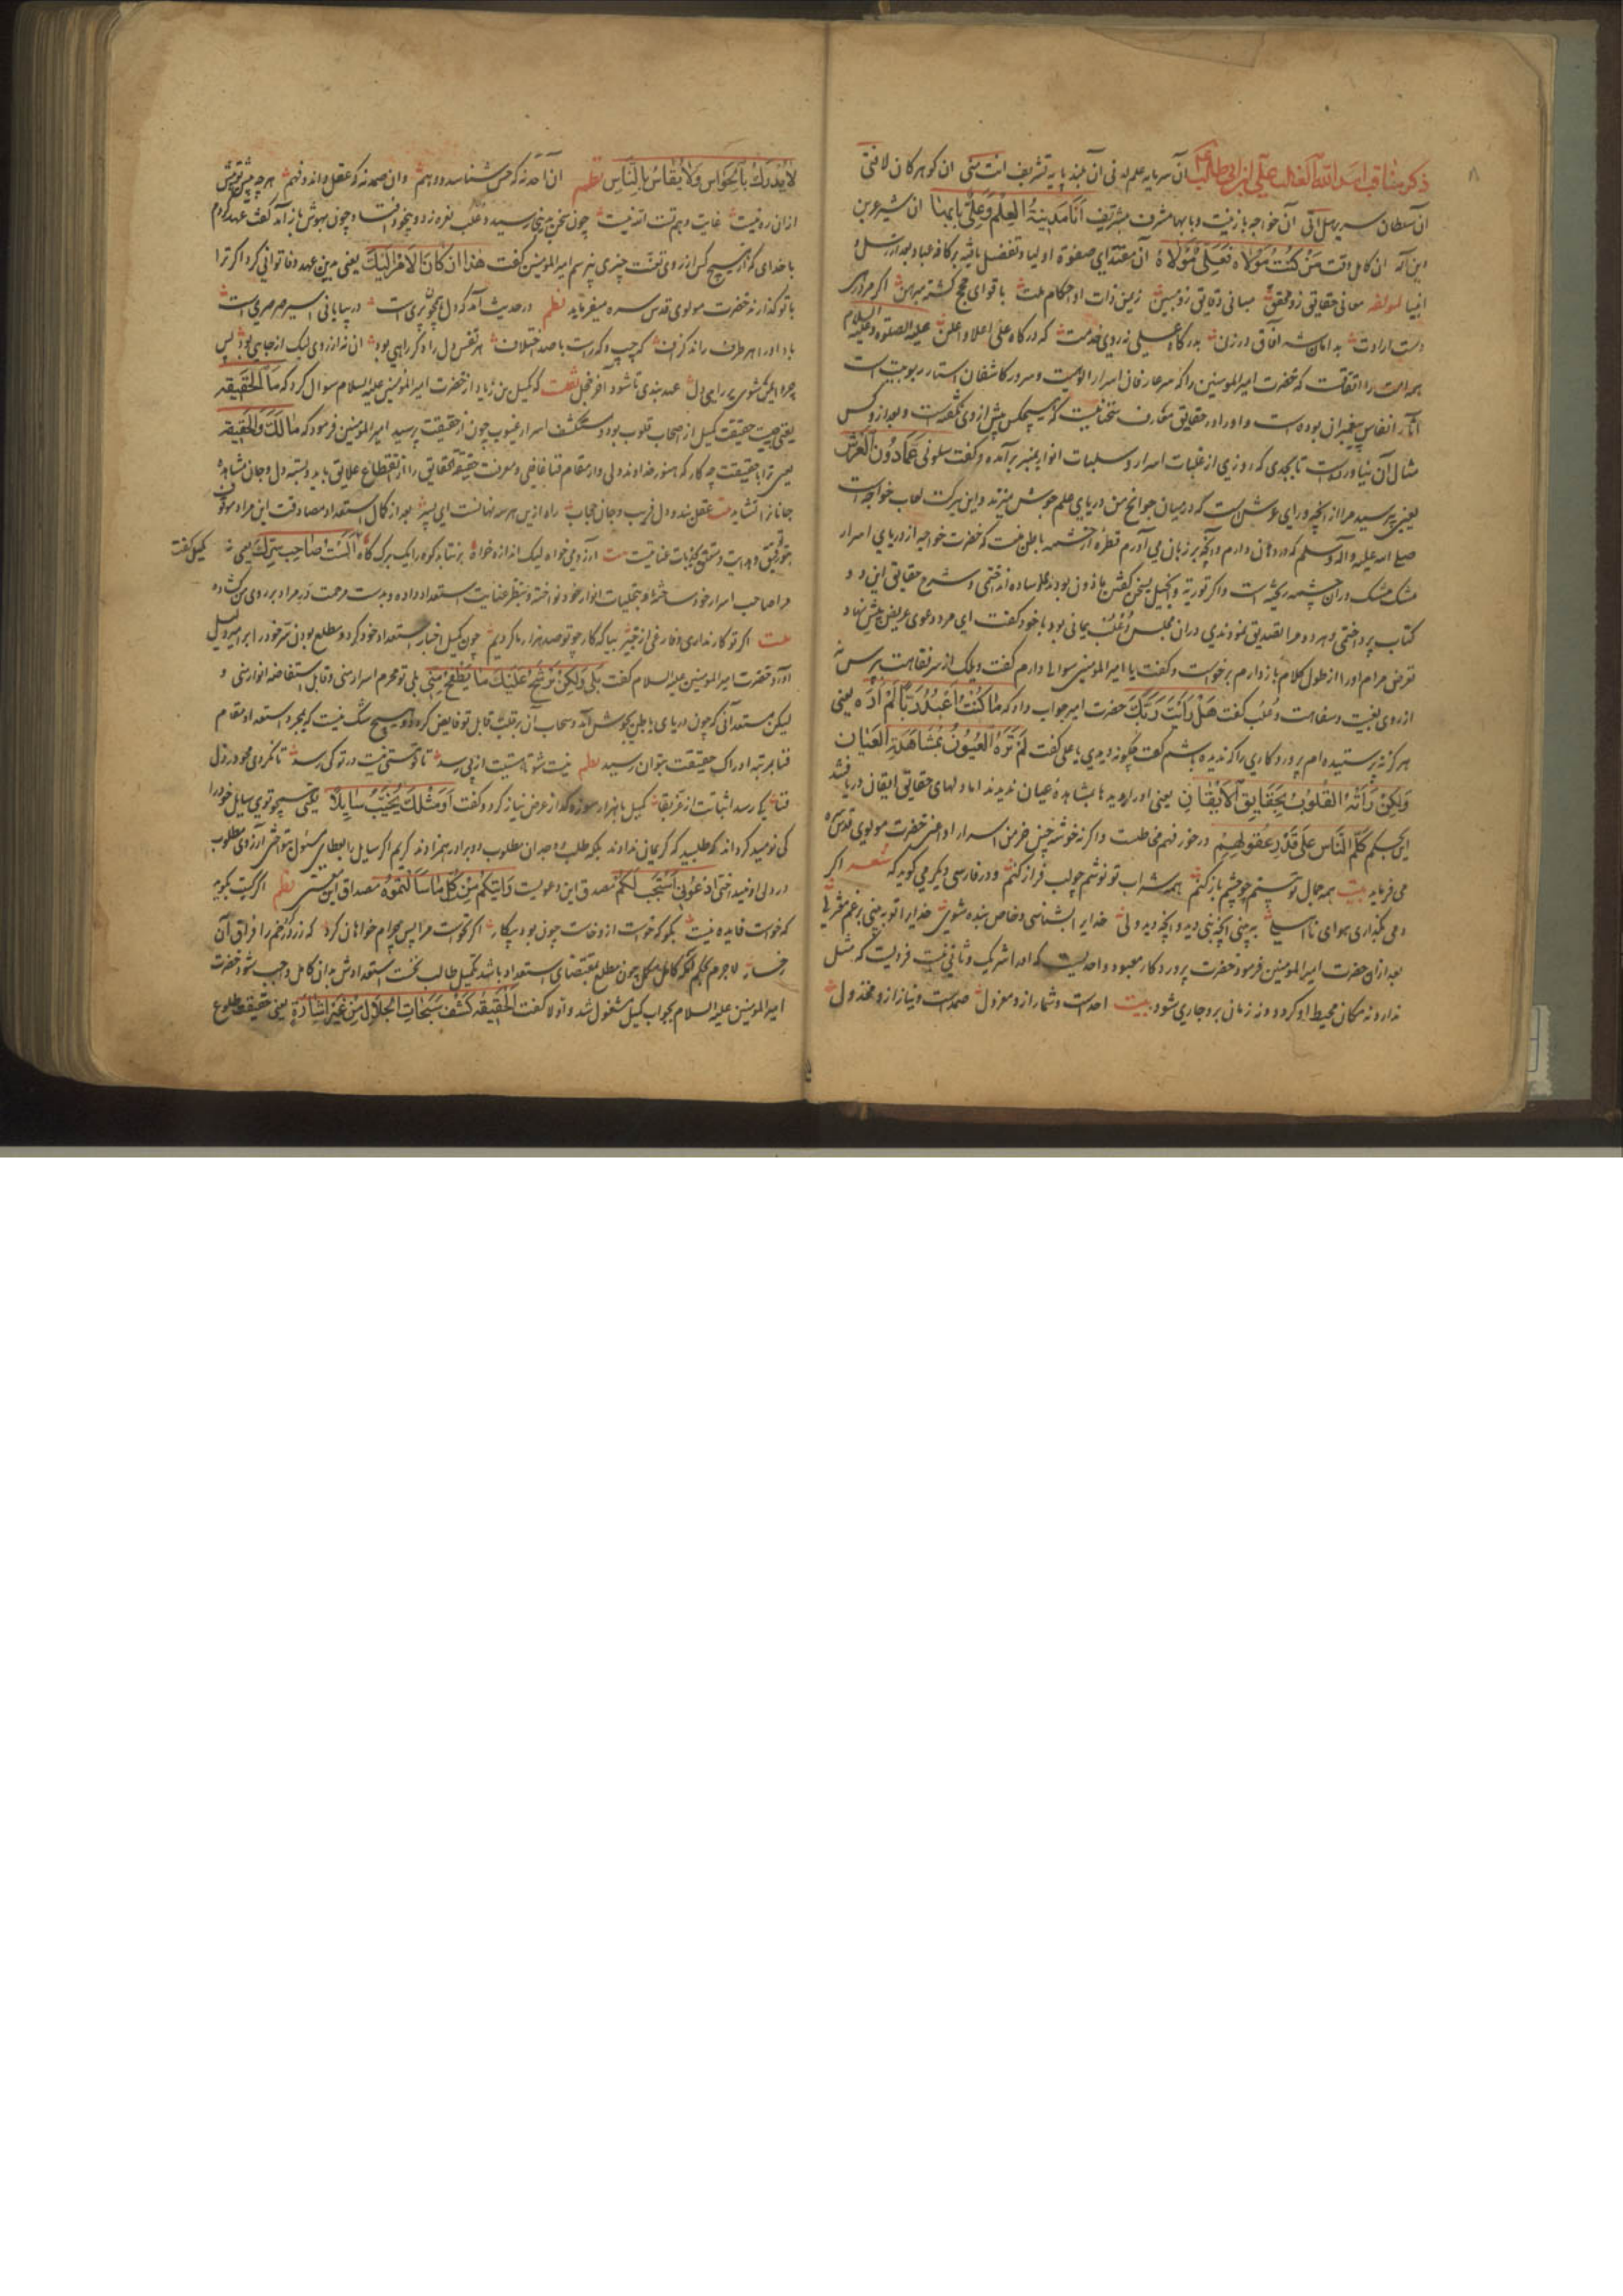 ۸
ذکر مناقب اسد الله الغالب علی ابن ابی طالب آن سرمایه علم لدنی آن بلند پایه تشریف انت منی آن گوهر کان لافتی
آن سلطان سریر هل اتی آن خواجه با زینت و با بها مشرف بتشریف انا مدینة العلم و علی بابها آن شیر عرین
این آله آن کامل وقت من کنت مولاه فعلی مولاه آن مقتدای صفوة اولیا و تفضل یافته بر کافه عباد بعد از رسل و
انبیا لمولفه معانی حقایق زو محقق مبانی دقایق زو مبین زمین ذات او احکام ملت باقوای حجج گشته مبرهن اگر مردی
دست ارادت بدامان شه آفاق در زن بدرگاه علی نه روی خدمت که درگاه علی اعلا و اعلن علیه الصلوة و علیه السلام
همه امت را اتفاقست که حضرت امیر المومنین را که سر عارفان اسرار الوهیت و سرور کاشفان استار ربوبیت است
آثار انفاس پیغمبران بوده است و او را در حقایق معارف سخنانیست که هیچکس پیش از وی نگفته است و بعد از وی کس
مثال آن نیاورده است تا بحدی که روزی از غلبات اسرار و سلبات انوار بمنبر برآمده و گفت سلونی عما دون العرش
یعنی بپرسید مرا از آنچه ورای عرش است که در میان جوانح من دریای علم جوش میزند و این برکت لعاب خواجه است
صلی الله علیه و آله وسلم که در دهان دارم و آنچه بر زبان می آورم قطرهٔ از چشمه باطن منست که حضرت خواجه از دریای اسرار
مشک مشک در آن چشمه ریخته است و اگر توریة و انجیل بسخن گفتن ماذون بودند وساده انداختمی و شرح حقایق این دو
کتاب پرداختمی و هر دو مرا تصدیق نمودندی در آن مجلس دعلب یمانی بود با خود گفت ای مرد دعوی عریض پیش نهاد
تعرض مرام او را از طول کلام باز دارم برخواست و گفت یا امیر المومنین سوالی دارم گفت ویلک از سر تفاهت بپرس نه
از روی تعنت و سفاهت دعلب گفت هل رأیت ربک حضرت امیر جواب داد که ما کنت اعبد ربا لم اره یعنی
هرگز نه پرستیده ام پروردگاری را که ندیده باشم گفت چگونه دیدی یا علی گفت لم تره العیون بمشاهدة العیان
ولکن رأته القلوب بحقایق الایقان یعنی او را دیدها بمشاهدهٔ عیان ندیدند اما دلهای حقایق ایقان دریافتند
این بحکم کلم الناس علی قدر عقولهم در خور فهم مخاطبست و اگر نه خوشه چین خرمن اسرار او اعنی حضرت مولوی قدس سره
می فرماید بیت همه جمال تو بینم چو چشم باز کنم همه شراب تو نوشم چو لب فراز کنم و در فارسی دیگر می گوید که شعر اگر
بعد از آن حضرت امیر المومنین فرمود حضرت پروردگار معبود واحدیست که او را شریک و ثانی نیست فردیست که مثل
ندارد نه مکان محیط او گردد و نه زمان برو جاری شود بیت احدست و شمار ازو معزول صمدست و نیاز ازو مخذول
لا یدرک بالحواس ولا یقاس بالناس نظم آن احد نه که حس شناسد و وهم وان صمد نه که عقل داند و فهم هر چه پیش تو بیش
از آن ره نیست غایت وهم تست الله نیست چون سخن بدینجا رسید دعلب نعره زد و بیخود افتاد و چون بهوش باز آمد گفت عهد کردم
با خدای که از هیچ کس از روی تعنت چیزی نپرسم امیر المومنین گفت هذا ان کان الامر الیک یعنی بدین عهد وفا توانی کرد اگر ترا
با تو گذارند حضرت مولوی قدس سره میفرماید نظم در حدیث آمد که دل همچو پری است در بیابانی اسیر صرصری است
باد او را هر طرف راند گزاف گه چپ و گه راست با صد اختلاف هر نفس دل را دگر راهی بود آن نه از وی لیک از جاهی بود پس
چرا ایمن شوی بر رای دل عهد بندی تا شوی آخر خجل نقلست که کمیل بن زیاد از حضرت امیر المومنین علیه السلام سوال کرد که ما الحقیقه
یعنی چیست حقیقت کمیل از اصحاب قلوب بود و مستکشف اسرار غیوب چون از حقیقت پرسید امیر المومنین فرمود که مالک والحقیقه
یعنی ترا با حقیقت چه کار که هنوز خداوند دلی و از مقام فنا غافلی و معرفت حقیقة الحقایق را انقطاع علایق باید و بسته دل و جان مشاهدهٔ
جانان را نشاید بیت عقل بند و دل فریب و جان حجاب راه ازین هر سه نهانست ای پسر بعد از کمال استعداد مصادقت این مراد موقوف
توفیق و هدایت و متعلق بجذبات عنایتست بیت آرزو می خواه لیک اندازه خواه بر نتابد کوه را یک برگ کاه الست صاحب سرک یعنی نه کمیل گفت
مرا صاحب اسرار خود ساختهٔ و بتجلیات انوار خود نواخته و بنظر عنایت استعداد داده و بدست مرحمت در مراد بر روی من گشاده
بیت اگر تو کار نداری و فارغی از غیر بیا که کار چو تو صد هزار ره کردیم چون کمیل اخبار استعداد خود کرد و مطلع بودن سر خود را
آورد حضرت امیر المومنین علیه السلام گفت بلی ولکن یرشح علیک ما یطفح منی بلی تو محرم اسرار منی و قابل استفاضه انوار منی و
لیکن مستعد آنی که چون دریای باطن بجوش آید و سحاب آن بر قلب قابل تو فایض گردد و هیچ شک نیست که بمجرد استعداد مقام
فنا بمرتبه ادراک حقیقت نتوان رسید نظم نیست شو تا هستیت از پی رسد تا تو هستی هست در تو کی رسد تا نگردی محو در ذل
فنا کی رسد اثباتت از عز بقا کمیل با هزار سوز و گداز عرض نیاز کرد و گفت او مثلک یخیب سایلا یعنی همچو تویی سایل خود را
کی نومید گرداند که طلبید که کریمان ندادند بلکه طلب و وجدان مطلوب دو برادر همزادند کریم اگر سایل را بعطای مسئول ننواختی آرزوی مطلوب
در دل او نینداختی ادعونی استجب لکم مصدق این دعویست و آتیکم من کل ما سألتموه مصداق این معنی نظم اگر گیت بگوید
که خواست فایده نیست بگو که خواست ازو خاست چون بود بیکار اگر نخواست مرا پس چرام خواهان کرد که زرد کرد رخم را فراق آن
رخسار لاجرم بحکم آنکه کامل مکمل چون مطلع بمقتضای استعداد باشد تکمیل طالب بحسب استعدادش بدان کامل واجب شود حضرت
امیر المومنین علیه السلام بجواب کمیل مشغول شد و اولا گفت الحقیقه کشف سبحات الجلال من غیر اشارة یعنی حقیقت طلوع